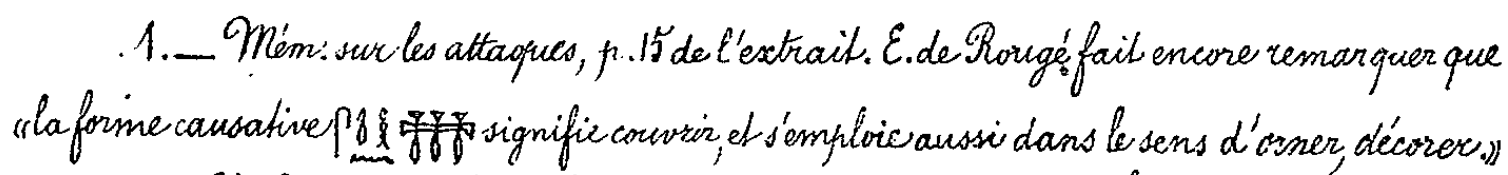 1.— Mém: sur les attaques, p. 15 de l'extrait. E. de Rougé fait encore remarquer que
«la forme causative signifie couvrir, et s'emploie aussi dans le sens d'orner, décorer.»